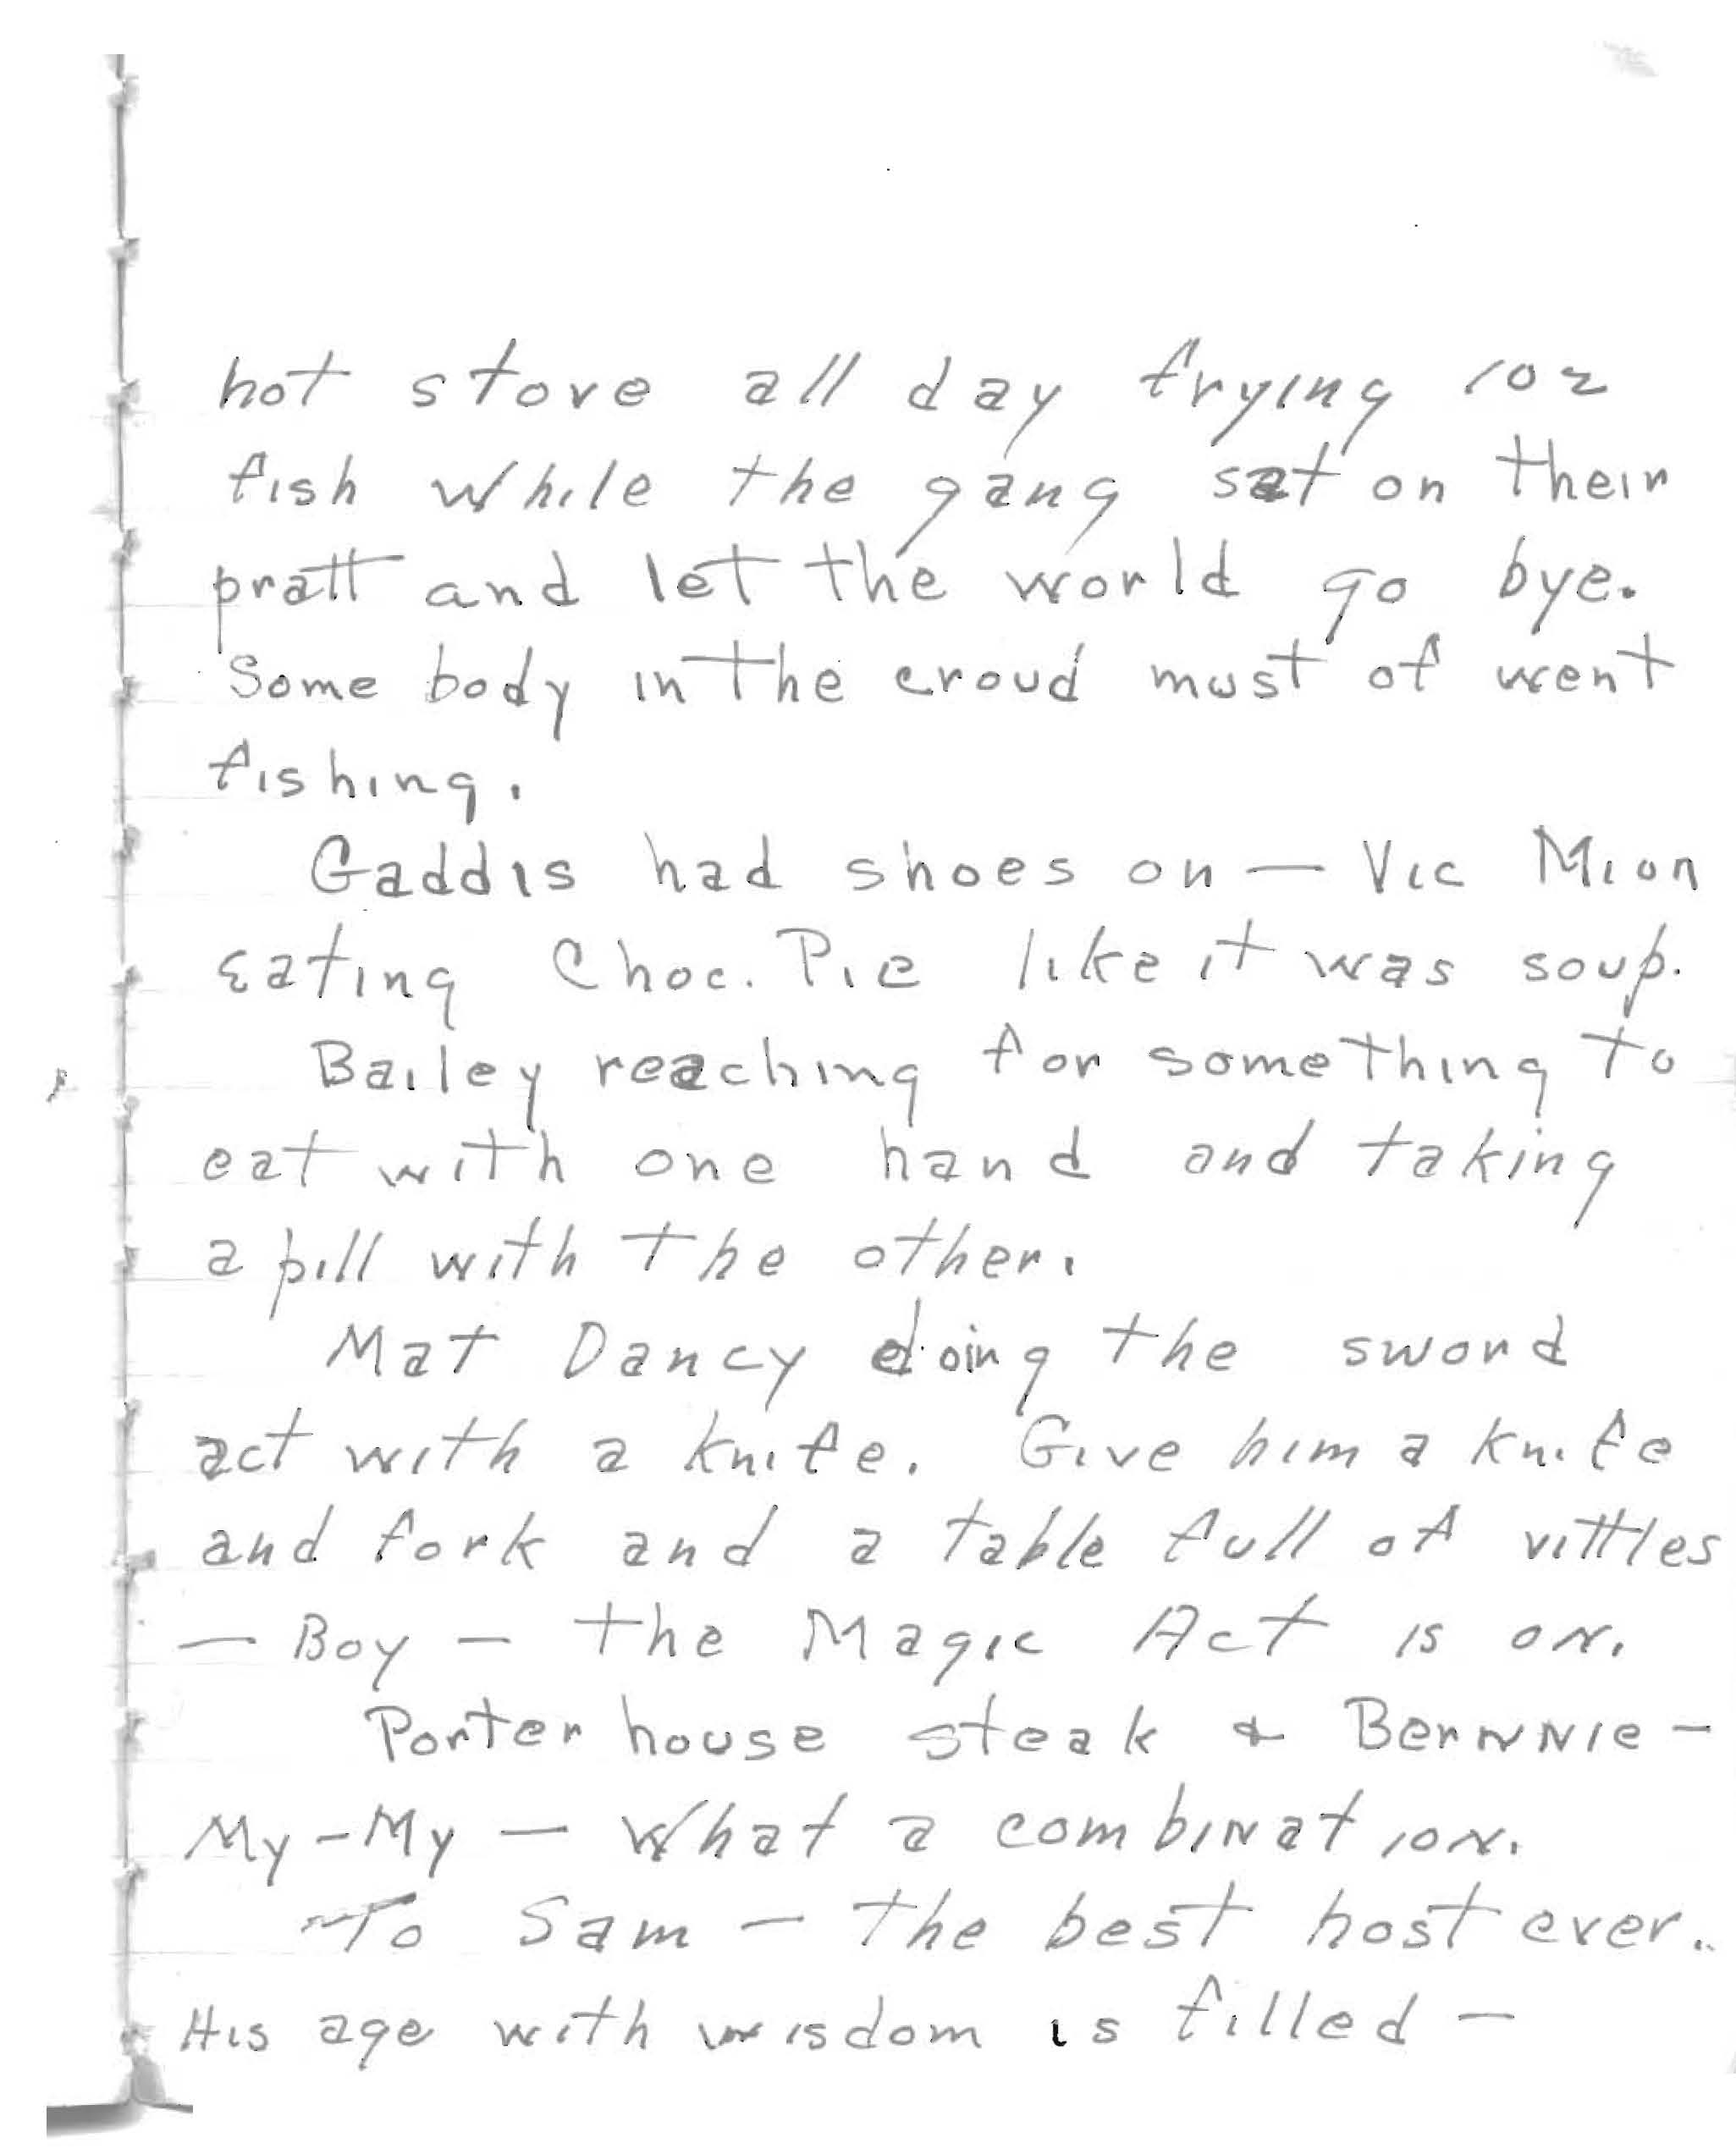 hot stove all day frying 102
fish while the gang sat on their
pratt and let the world go bye.
Some body in the croud must of went
fishing.
Gaddis had shoes on — Vic Mion
Eating Choc. Pie like it was soup.
Bailey reaching for something to
eat with one hand and taking
a pill with the other.
Mat Dancy doing the sword
act with a knife. Give him a knife
and fork and a table full of vittles
— Boy — the Magic Act is on.
Porter house steak & Bernnie —
My-My — What a combination.
To Sam — the best host ever..
His age with wisdom is filled —